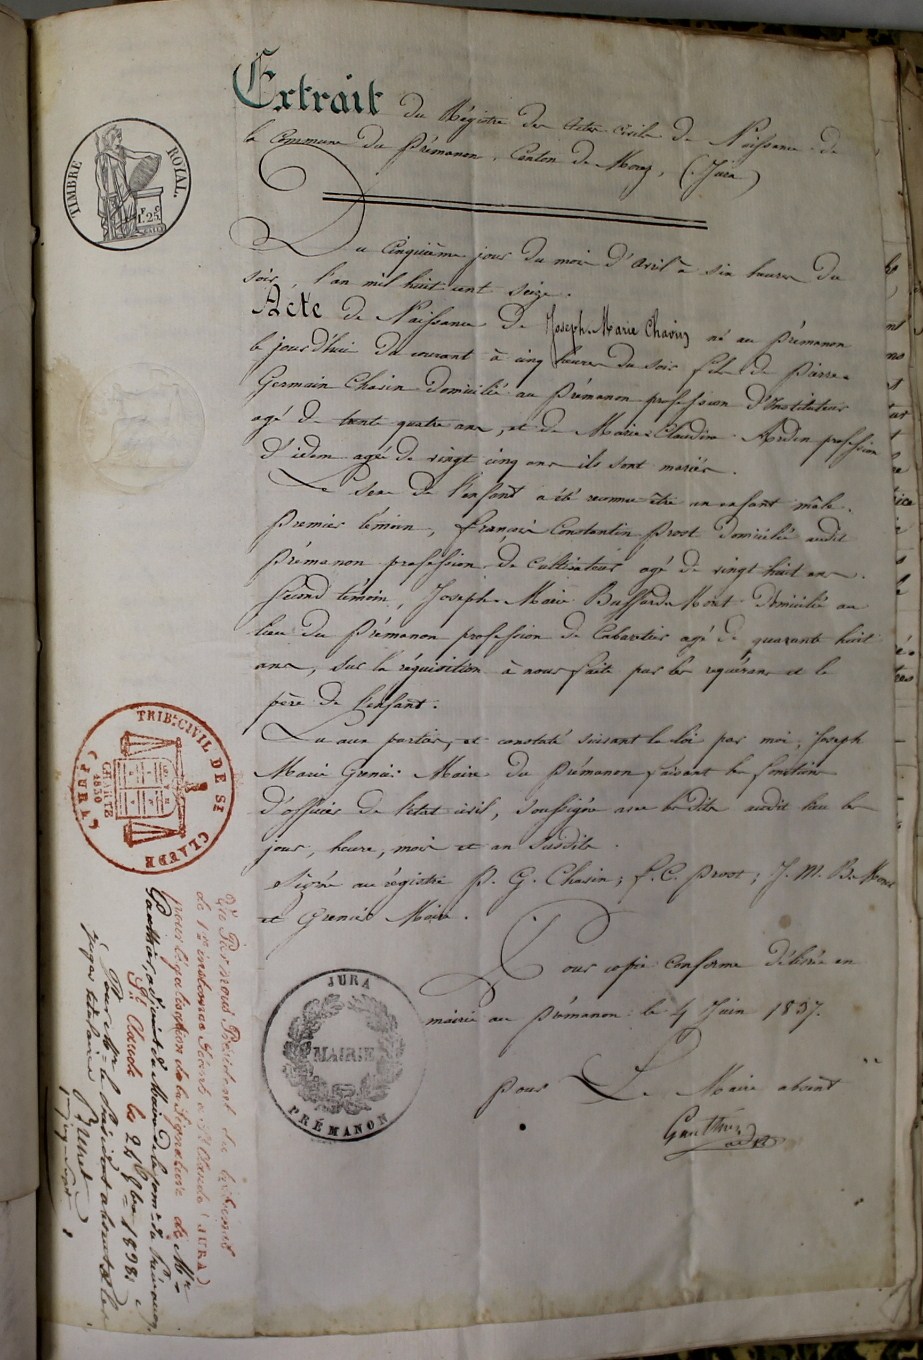 Extrait du Régistre des Actes Civils de Naissance de
la Commune du Prémanon, Canton de Morez, (Jura)
TIMBRE ROYAL.
1.25
Du Cinquième jour du mois d'avril à six heures du
soir, l'an mil huit cent seize.
Acte de Naissance de Joseph-Marie Chavin né au Prémanon
le jourd'hui du courant à cinq heures du soir fils de Pierre-
Germain Chavin domicilié au Prémanon profession d'Instituteur
agé de trente quatre ans, et de Marie Claudine profession
d'idem agée de vingt cinq ans ils sont mariés.
Le sexe de l'enfant a été reconnu être un enfant mâle.
Premier témoin, françois Constantin Prost domicilié audit
Prémanon profession de cultivateur agé de vingt huit ans.
Second témoin, Joseph-Marie Buffard Mont domicilié au
lieu du Prémanon profession de Cabaretier agé de quarante huit
ans, sur la réquisition à nous faite par les requérans et le
père de l'enfant.
Lu aux parties, et constaté suivant la loi par moi, Joseph
Marie Grenier Maire du Prémanon faisant les fonctions
d'officier de l'état civil, soussigné avec les dits audit lieu les
jour, heure, mois et an susdits.
Signé au régistre P. G. Chavin; f. C. Prost; J. M. B. Mont
et Grenier Maire.
Pour copie conforme délivrée en
mairie au Prémanon le 4 Juin 1837.
pour Le Maire absent
Gauthier
adjt
JURA
MAIRIE
PRÉMANON
TRIB. CIVIL DE ST CLAUDE
(JURA)
CHARTE
1830
Président du tribunal
de 1re instance séant à St Claude (JURA)
pour légalisation de la Signature de Mr
Gauthier, adjoint du Maire de la Comne de Prémanon
St Claude le
Pour Mr le Président absent
juge titulaire